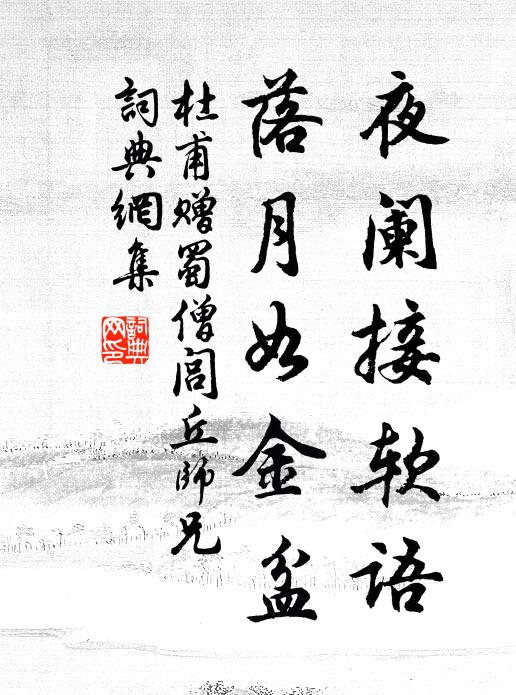 夜阑接软语
落月如金盆
杜甫赠蜀僧闾丘師兄
詞典網集
詞典
网印